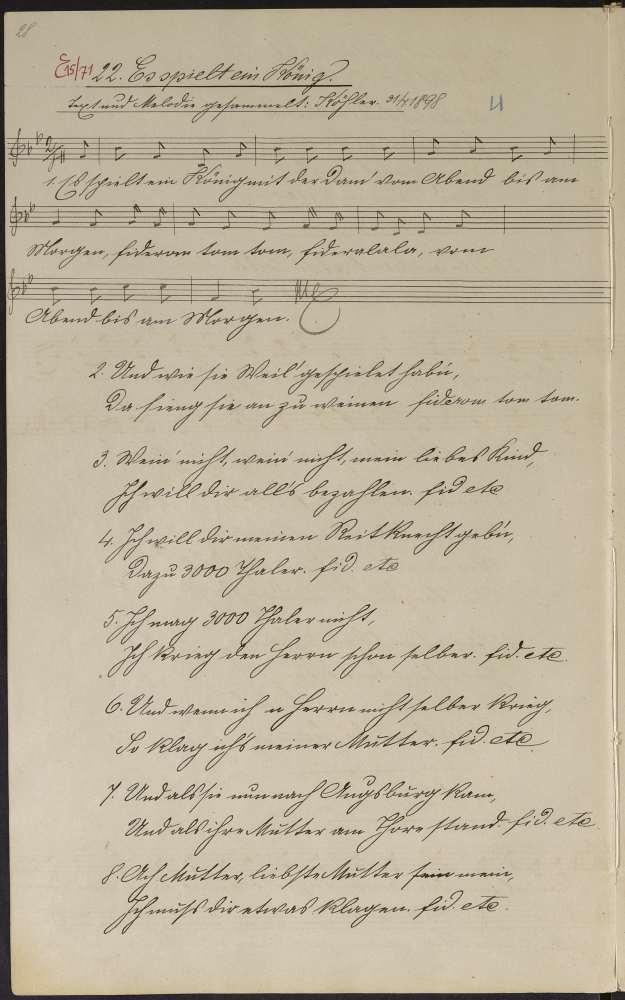 28
E15/71 22. Es spielt ein König.
Text und Melodie gesammelt: Köhler. 1898
1. Es spielt ein König mit der Dam' vom Abend bis am
Morgen, fiderom tom tom, fideralala, vom
Abend bis am Morgen.
2. Und wie sie Weil' gespielet hab'n,
Da fieng sie an zu weinen fiderom tom tom.
3. Wein' nicht, wein' nicht, mein liebes Kind,
Ich will dir all's bezahlen. fid etc
4. Ich will dir meinen Reitknecht geb'n,
Dazu 3000 Thaler. fid. etc
5. Ich mag 3000 Thaler nicht,
Ich krieg den Herrn schon selber. fid. etc.
6. Und wenn ich n Herrn nicht selber krieg,
So klag ich's meiner Mutter. fid. etc
7. Und als sie nun nach Augsburg kam,
Und als ihre Mutter am Thore stand. fid. etc.
8. Ach Mutter, liebste Mutter mein,
Ich muß dir etwas klagen. fid. etc.